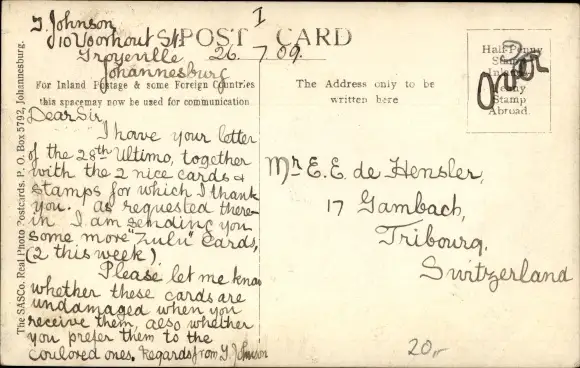 I
J. Johnson
10 Voorhout St.
Troyeville
Johannesburg
POST CARD
26. 7. 09.
For Inland Postage & some Foreign Countries
this space may now be used for communication
The Address only to be
written here
Half-Penny
Stamp
Inland
Penny
Stamp
Abroad.
Dear Sir,
I have your letter
of the 28th Ultimo, together
with the 2 nice cards &
stamps for which I thank
you. as requested there-
in I am sending you
some more "Zulu" cards,
(2 this week).
Please let me know
whether these cards are
undamaged when you
receive them, also whether
you prefer them to the
coulored ones. Regards from J. Johnson
Mr E. E. de Hensler,
17 Gambach,
Fribourg,
Switzerland
20,-
The SASCo. Real Photo Postcards. P. O. Box 5792, Johannesburg.